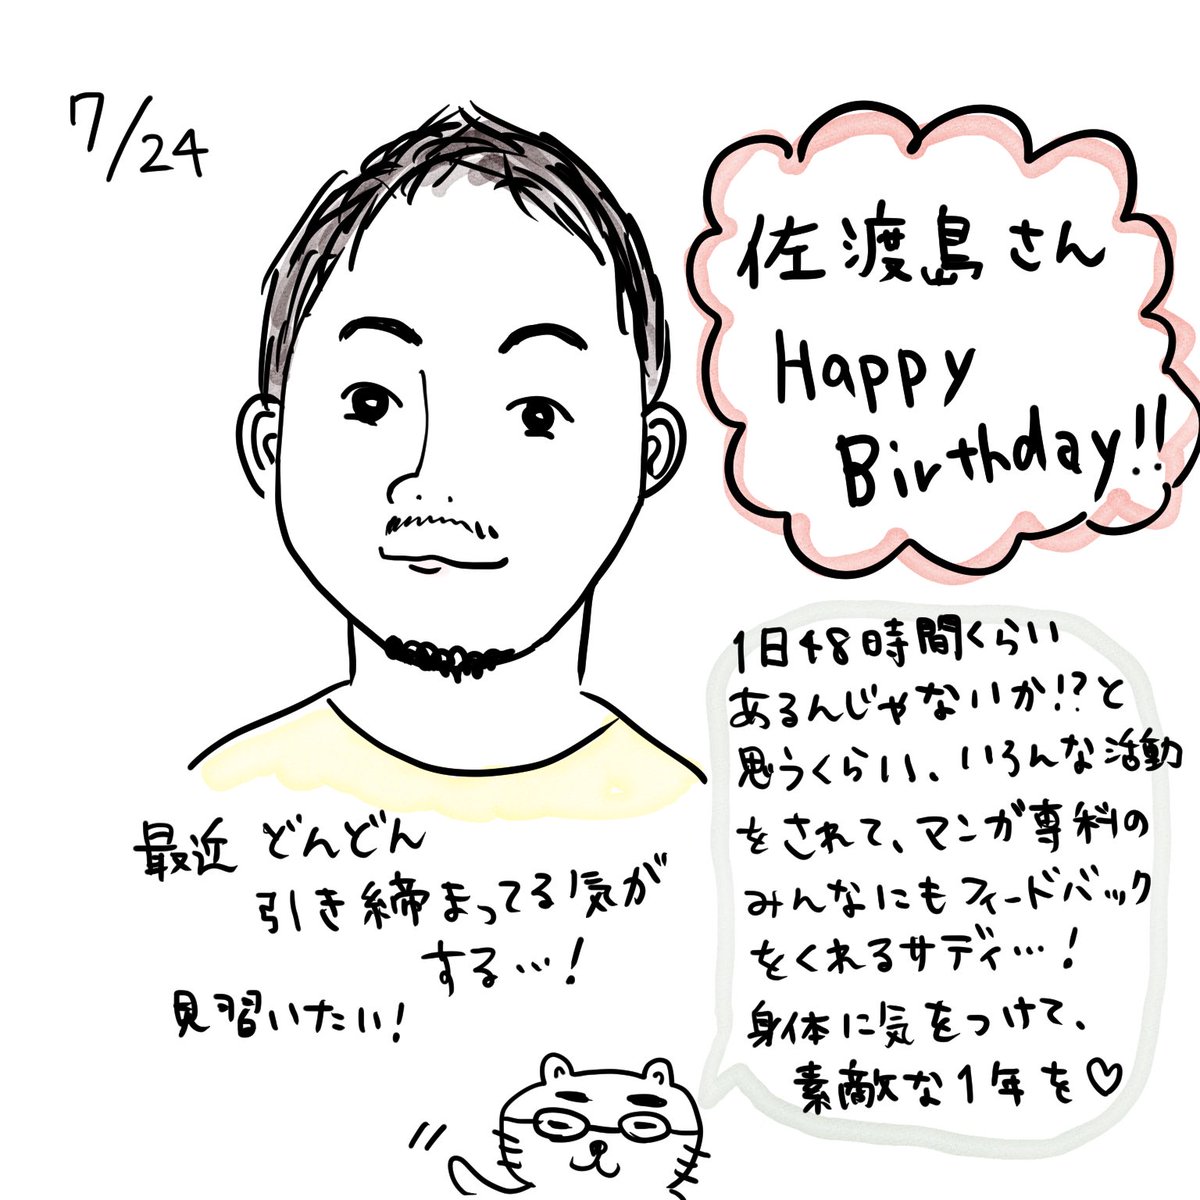 7/24
佐渡島さん
Happy
Birthday!!
1日48時間くらい
あるんじゃないか!?と
思うくらい、いろんな活動
をされて、マンガ専科の
みんなにもフィードバック
をくれるサディ…!
身体に気をつけて、
素敵な1年を♡
最近 どんどん
引き締まってる気が
する…!
見習いたい!